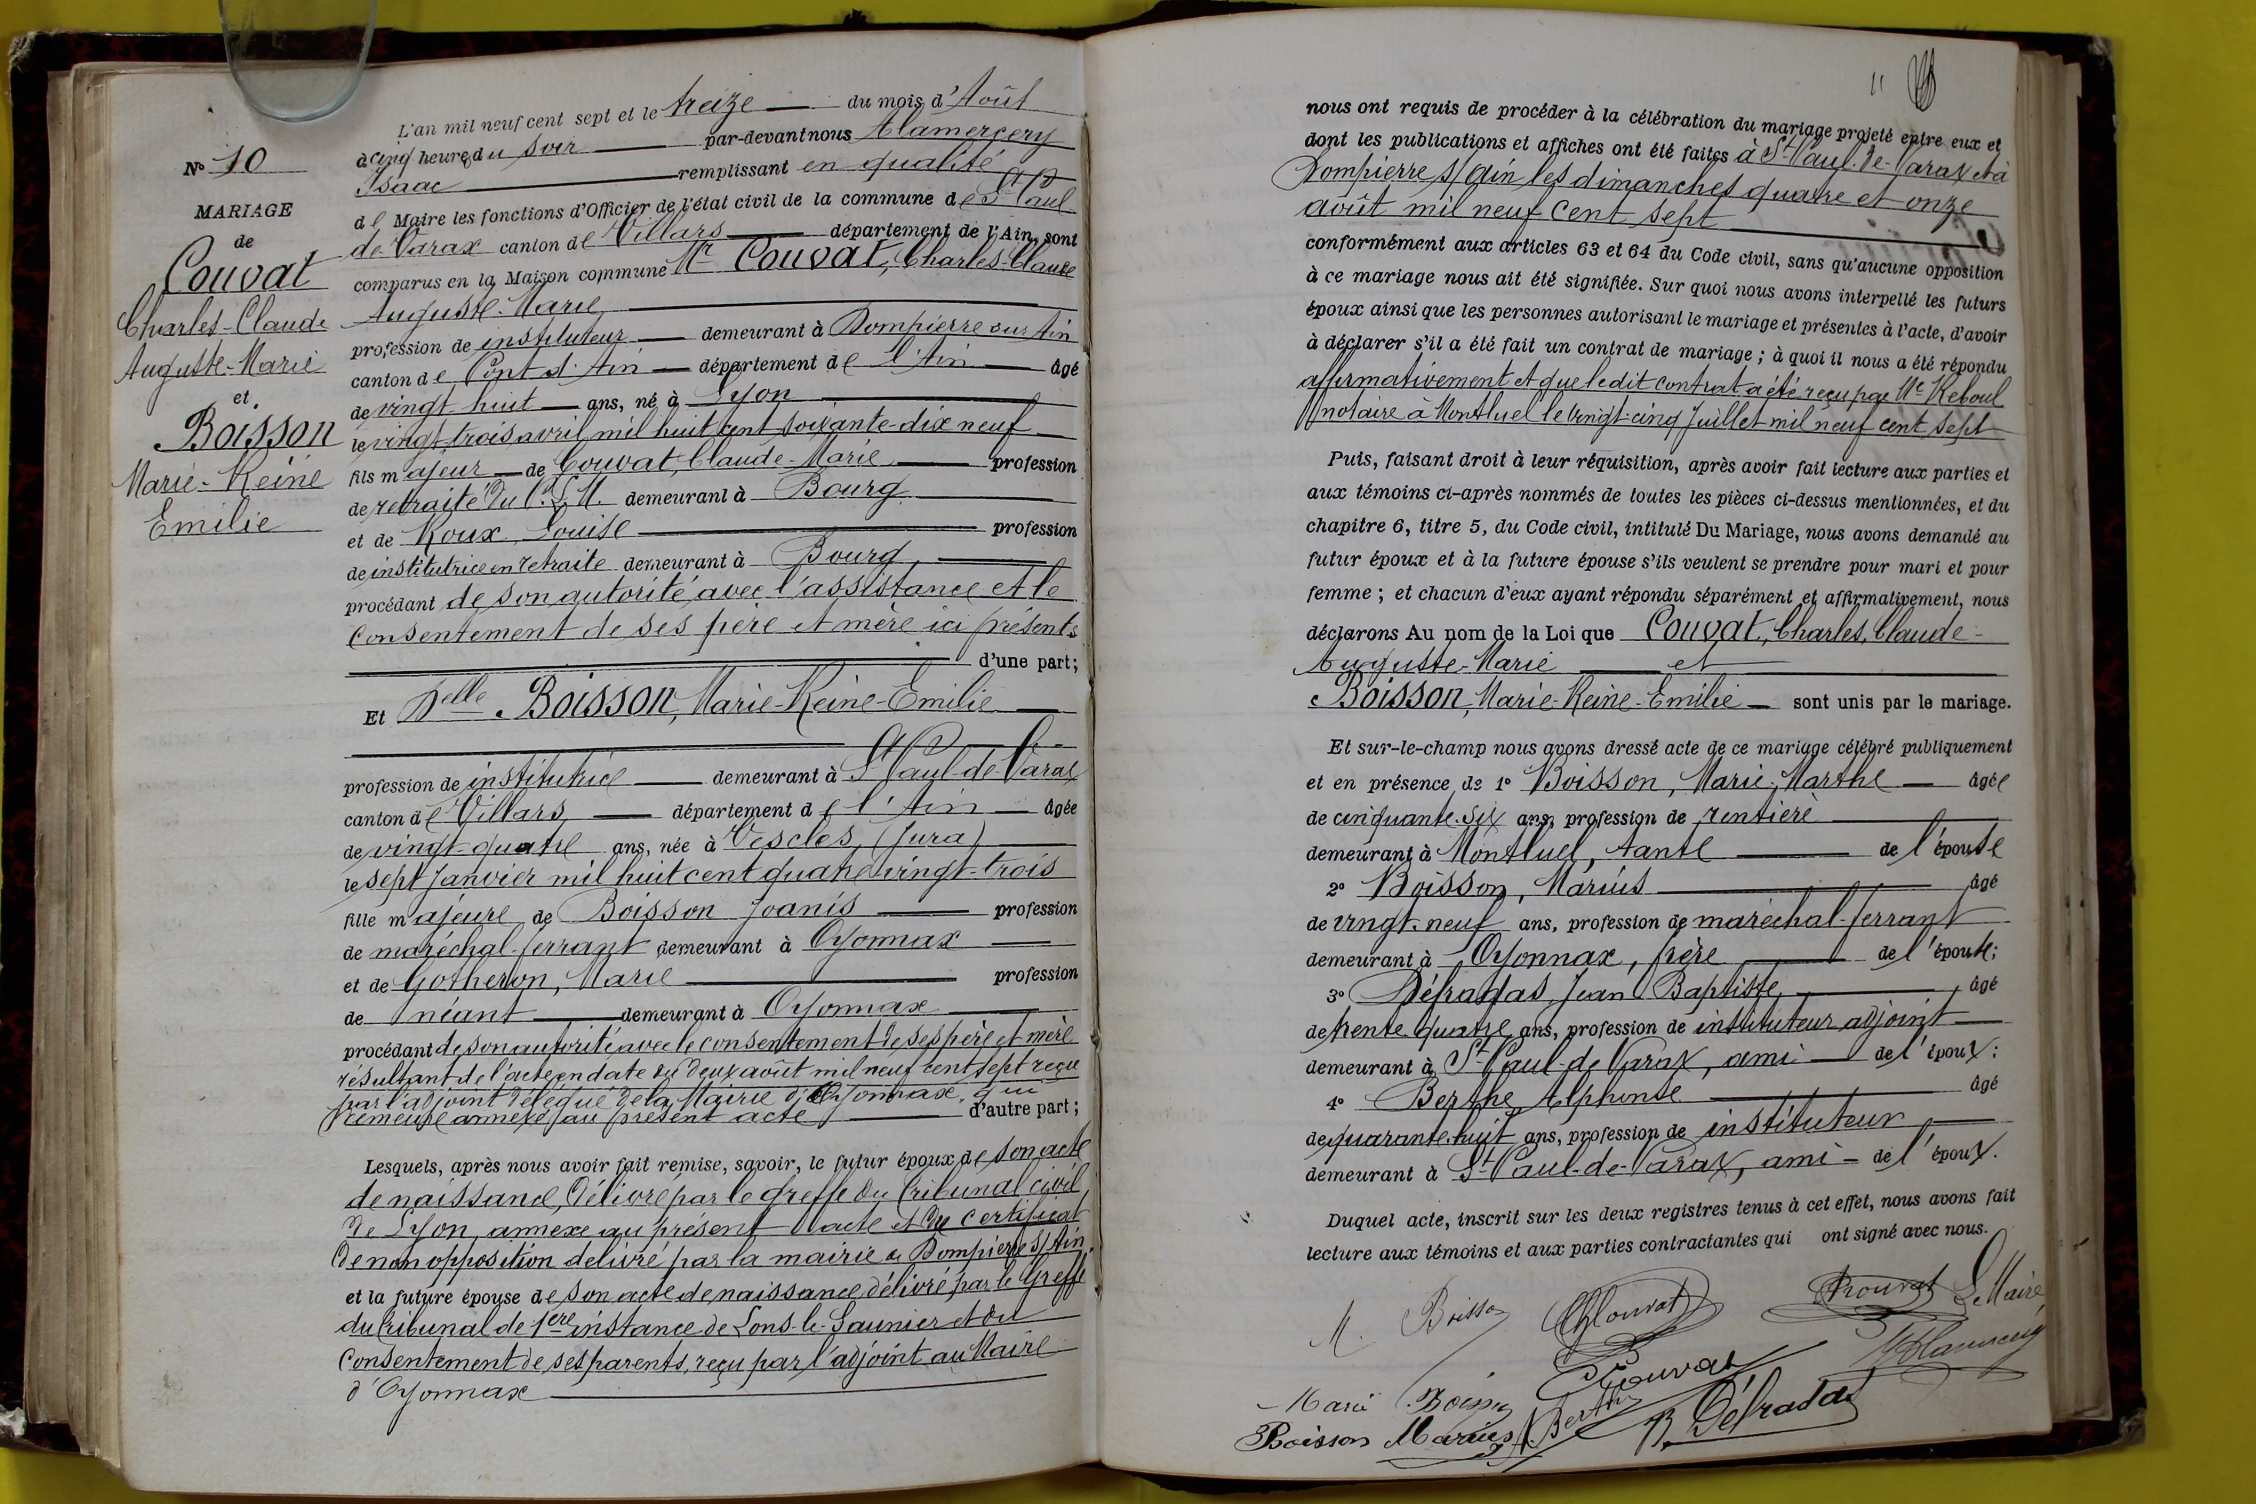 N° 10
MARIAGE
de
Couvat
Charles-Claude
Auguste-Marie
et
Boisson
Marie-Reine
Emilie
L'an mil neuf cent sept et le treize du mois d'Août
à cinq heures du soir par-devant nous Alamercery
Isaac remplissant en qualité
de Maire les fonctions d'Officier de l'état civil de la commune de St Paul
de Varax canton de Villars département de l'Ain, sont
comparus en la Maison commune Mr Couvat, Charles-Claude
Auguste-Marie
profession de instituteur demeurant à Dompierre sur Ain
canton de Pont d'Ain département de l'Ain âgé
de vingt huit ans, né à Lyon
le vingt-trois avril mil huit cent soixante-dix neuf
fils majeur de Couvat, Claude-Marie profession
de retraité du P.L.M. demeurant à Bourg
et de Roux, Louise profession
de institutrice en retraite demeurant à Bourg
procédant de son autorité avec l'assistance et le
consentement de ses père et mère ici présents
d'une part;
Et Delle Boisson, Marie-Reine-Emilie
profession de institutrice demeurant à St Paul-de-Varax
canton de Villars département de l'Ain âgée
de vingt-quatre ans, née à Vescles, (Jura)
le sept Janvier mil huit cent quatre vingt-trois
fille majeure de Boisson Joanis profession
de maréchal-ferrant demeurant à Oyonnax
et de Gotheron, Marie profession
de néant demeurant à Oyonnax
procédant de son autorité avec le consentement de ses père et mère
résultant de l'acte en date du deux août mil neuf cent sept reçu
par l'adjoint délégué de la Mairie d'Oyonnax, qui
demeure annexé au présent acte d'autre part;
Lesquels, après nous avoir fait remise, savoir, le futur époux de son acte
de naissance, délivré par le Greffe du Tribunal civil
de Lyon, annexe au présent acte et du certificat
de non opposition delivré par la mairie de Dompierre s/Ain.
et la future épouse de son acte de naissance délivré par le Greffe
du Tribunal de 1ere instance de Lons-le-Saunier et du
consentement de ses parents, reçu par l'adjoint au Maire
d'Oyonnax
11
nous ont requis de procéder à la célébration du mariage projeté entre eux et
dont les publications et affiches ont été faites à St Paul-de-Varax et à
Dompierre s/Ain les dimanches quatre et onze
août mil neuf cent sept
conformément aux articles 63 et 64 du Code civil, sans qu'aucune opposition
à ce mariage nous ait été signifiée. Sur quoi nous avons interpellé les futurs
époux ainsi que les personnes autorisant le mariage et présentes à l'acte, d'avoir
à déclarer s'il a été fait un contrat de mariage; à quoi il nous a été répondu
affirmativement et que ledit contrat a été reçu par Me Reboul
notaire à Montluel le vingt-cinq Juillet mil neuf cent sept
Puis, faisant droit à leur réquisition, après avoir fait lecture aux parties et
aux témoins ci-après nommés de toutes les pièces ci-dessus mentionnées, et du
chapitre 6, titre 5, du Code civil, intitulé Du Mariage, nous avons demandé au
futur époux et à la future épouse s'ils veulent se prendre pour mari et pour
femme; et chacun d'eux ayant répondu séparément et affirmativement, nous
déclarons Au nom de la Loi que Couvat, Charles, Claude-
Auguste-Marie et
Boisson, Marie-Reine-Emilie sont unis par le mariage.
Et sur-le-champ nous avons dressé acte de ce mariage célébré publiquement
et en présence de 1° Boisson, Marie-Marthe âgée
de cinquante-six ans, profession de rentière
demeurant à Montluel, tante de l'épouse
2° Boisson, Marius âgé
de vingt-neuf ans, profession de maréchal-ferrant
demeurant à Oyonnax, frère de l'épouse;
3° Défradas, Jean Baptiste âgé
de trente quatre ans, profession de instituteur adjoint
demeurant à St-Paul-de-Varax, ami de l'époux;
4° Berthe Alphonse âgé
de quarante-huit ans, profession de instituteur
demeurant à St-Paul-de-Varax, ami de l'époux.
Duquel acte, inscrit sur les deux registres tenus à cet effet, nous avons fait
lecture aux témoins et aux parties contractantes qui ont signé avec nous.
M. Boisson Couvat Le Maire
Couvat Alamercery
Marie Boisson
Boisson Marius A. Berthe B. Défradas